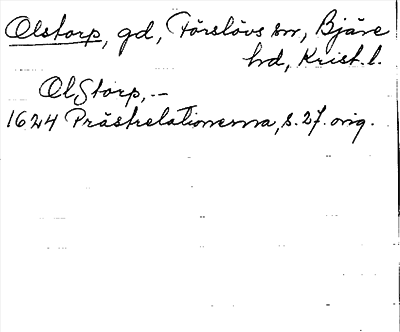 Olstorp, gd, Förslövs sn, Bjäre
hd, Krist. l.
OlStorp, --
1624 Prästrelationerna, s. 27. orig.